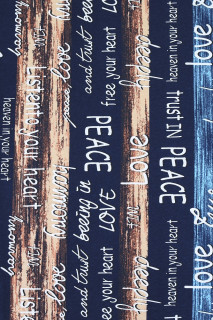 harmony
heaven in your heart
harmony
Listen to your heart
List
love
peace
harmony
love
and trust
beeing in
and trust beeing
free your heart
PEACE
LOVE
free your heart
happy
Love
happy
heaven in your heart
trust IN PEACE
heaven in your heart
love
&
love